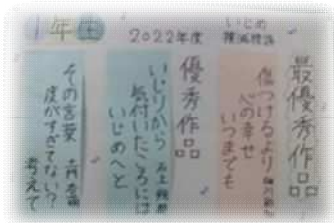 1年団
2022年度
いじめ
撲滅標語
最優秀作品
傷つけるより
心の幸せ
いつまでも
優秀作品
いじりから
気付いたころには
いじめへと
その言葉
度がすぎてない?
考えて